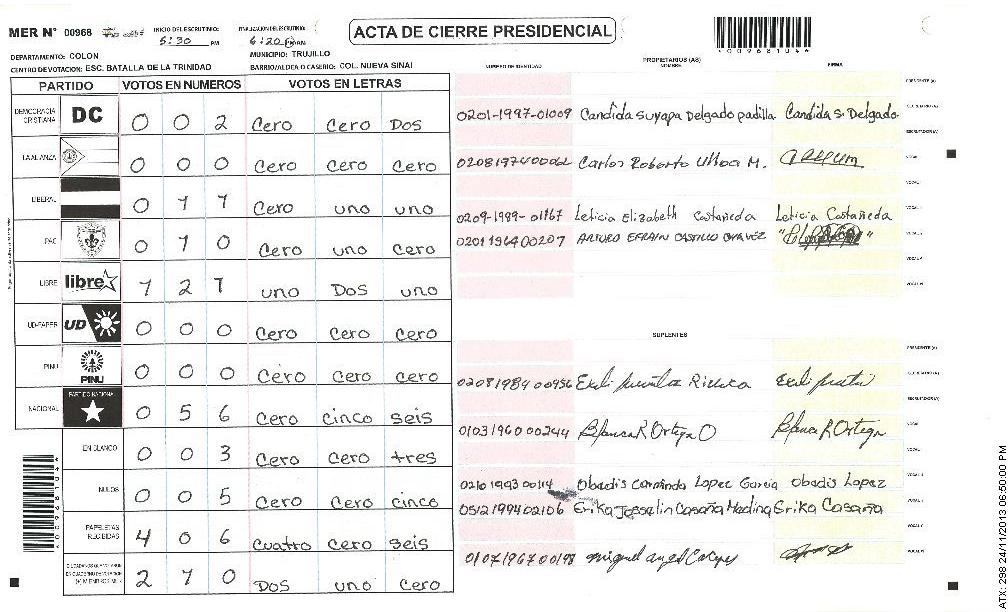 MER N° 00968
INICIO DEL ESCRUTINIO: 5:30 PM
FINALIZACION DEL ESCRUTINIO: 6:20 PM
ACTA DE CIERRE PRESIDENCIAL
*00968104*
DEPARTAMENTO: COLON
MUNICIPIO: TRUJILLO
CENTRO DE VOTACION: ESC. BATALLA DE LA TRINIDAD
BARRIO/ALDEA O CASERIO: COL. NUEVA SINAI
PARTIDO VOTOS EN NUMEROS VOTOS EN LETRAS
DEMOCRACIA CRISTIANA DC 0 0 2 Cero Cero Dos
LA ALIANZA 0 0 0 Cero Cero Cero
LIBERAL 0 1 1 Cero uno uno
PAC 0 1 0 Cero uno Cero
LIBRE libre 1 2 1 uno Dos uno
UD-FAPER UD 0 0 0 Cero Cero Cero
PINU PINU 0 0 0 Cero Cero Cero
NACIONAL PARTIDO NACIONAL 0 5 6 Cero cinco seis
EN BLANCO 0 0 3 Cero Cero tres
NULOS 0 0 5 Cero Cero cinco
PAPELETAS RECIBIDAS 4 0 6 Cuatro Cero seis
2 1 0 Dos uno Cero
NUMERO DE IDENTIDAD PROPIETARIOS (AS) NOMBRE FIRMA
PRESIDENTE (A)
0201-1997-01009 Candida Suyapa Delgado padilla Candida S. Delgado SECRETARIO (A)
ESCRUTADOR (A)
0208197400062 Carlos Roberto Ulloa M. VOCAL I
VOCAL II
0209-1989-01167 Leticia Elizabeth Castañeda Leticia Castañeda VOCAL III
0201196400207 ARTURO EFRAIN CASTILLO CHAVEZ
SUPLENTES
PRESIDENTE (A)
0208198400956 SECRETARIO (A)
ESCRUTADOR (A)
0103196000244 Blanca R Ortega O Blanca R Ortega
0210199300114 Obadis Carmindo Lopez Garcia Obadis Lopez
0512199402106 Erika Josselin Casaña Medina Erika Casaña
0107196700198 miguel angel
ATX: 298 24/11/2013 06:50:00 PM